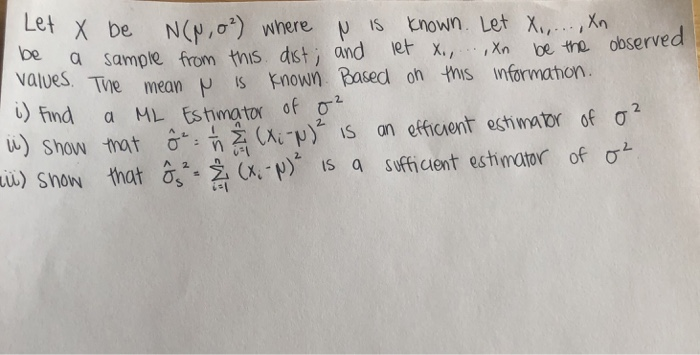 Let X be N(μ,σ²) where μ is known. Let X₁,...,Xn
be a sample from this dist; and let x₁,...,xn be the observed
values. The mean μ is known. Based on this information.
i) Find a ML Estimator of σ²
ii) Show that σ̂² = 1/n Σᵢ₌₁ⁿ (Xᵢ-μ)² is an efficient estimator of σ²
iii) Show that σ̂ₛ² = Σᵢ₌₁ⁿ (Xᵢ-μ)² is a sufficient estimator of σ²